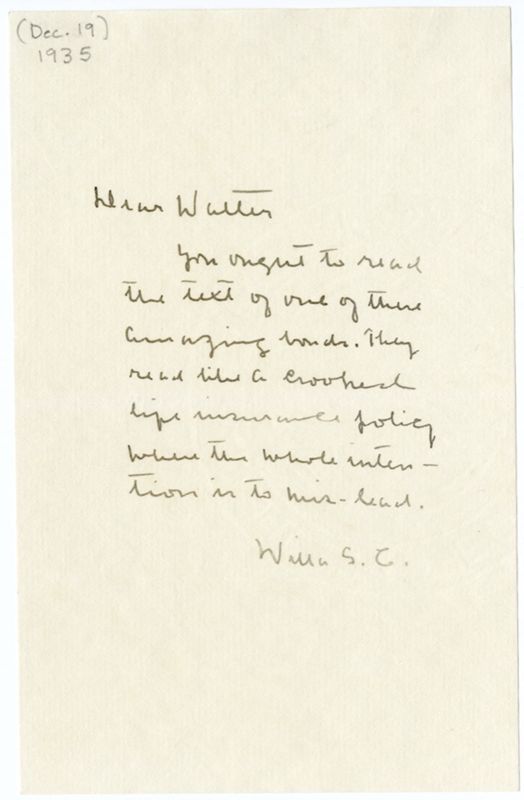 (Dec. 19)
1935
Dear Walter
You ought to read
the text of one of these
amazing bonds. They
read like a crooked
life insurance policy
where the whole inten-
tion is to mis-lead.
Willa S. C.